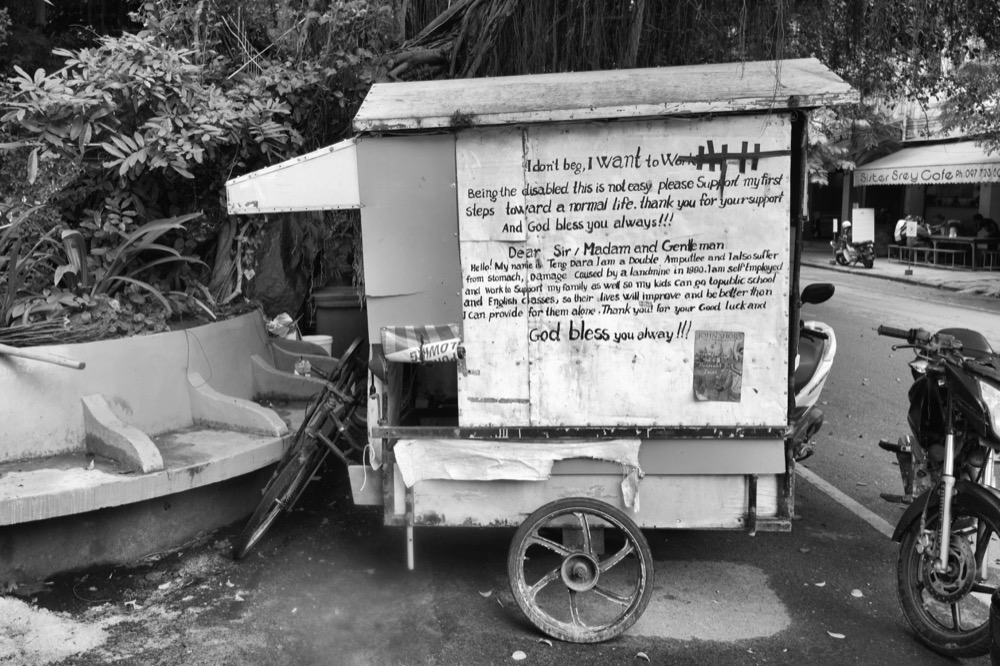 I don't beg, I want to Work
Being the disabled this is not easy please Support my first
steps toward a normal life. thank you for your support
And God bless you always!!!
Dear Sir / Madam and Gentleman
Hello! My name is Teng dara I am a Double Amputiee and I also suffer
from stomach, Damage Caused by a landmine in 1980. I am self Employed
and work to Support my family as well so my kids Can go to public school
and English classes, so their lives will improve and be better than
I can provide for them alone. Thank you! for your Good luck and
God bless you alway!!!
Sister Srey Cafe Ph:097 723 80